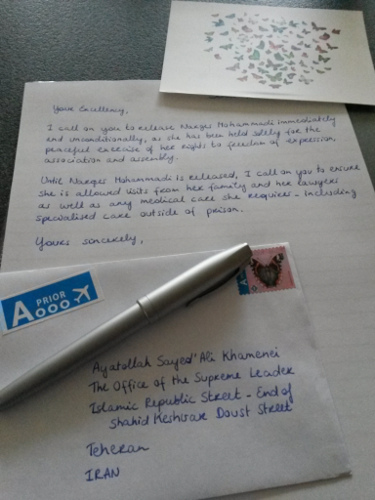 Your Excellency,
I call on you to release Narges Mohammadi immediately
and unconditionally, as she has been held solely for the
peaceful exercise of her rights to freedom of expression,
association and assembly.
Until Narges Mohammadi is released, I call on you to ensure
she is allowed visits from her family and her lawyers
as well as any medical care she requires - including
specialised care outside of prison.
Yours sincerely,
A PRIOR
Ayatollah Sayed 'Ali Khamenei
The Office of the Supreme Leader
Islamic Republic Street - End of
Shahid Keshvar Doust Street
Teheran
IRAN